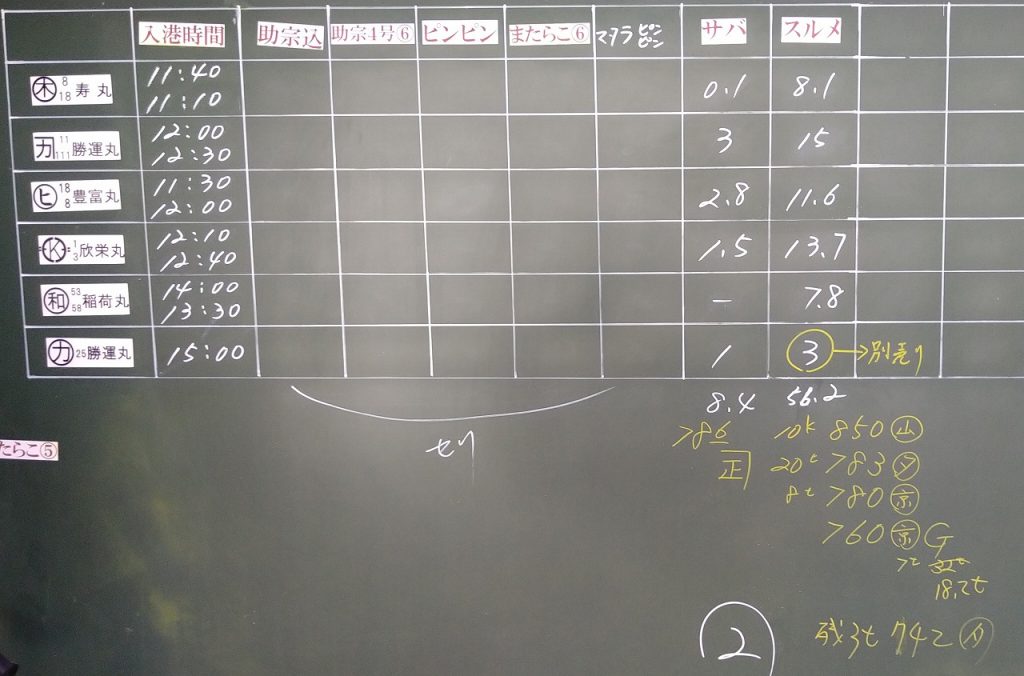 入港時間 助宗込 助宗4号⑥ ピンピン またらこ⑥ マダラピンピン サバ スルメ
木 8 18 寿丸 11:40 11:10 0.1 8.1
カ 11 111 勝運丸 12:00 12:30 3 15
ヒ 18 8 豊富丸 11:30 12:00 2.8 11.6
K 1 3 欣栄丸 12:10 12:40 1.5 13.7
和 53 58 稲荷丸 14:00 13:30 - 7.8
カ 25 勝運丸 15:00 1 ③→別売り
8.4 56.2
たらこ⑤
セリ
786
正
10k 850 山
20t 783 夕
8t 780 京
760 京 G
7t
18.2t
残3t 742 夕
②